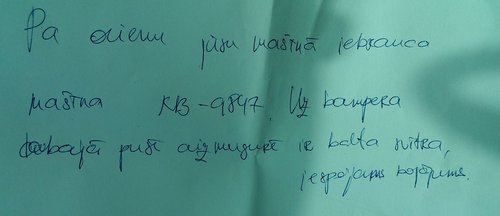 Pa dienu jūsu mašīnā iebrauca
mašīna KB-9847. Uz bampera
labajā pusē aizmugurē ir balta svītra,
iespējams bojājums.